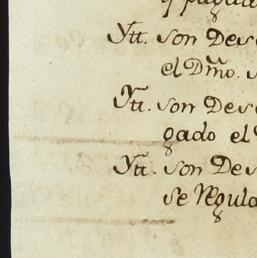 y pagua
Ytt. son Des
el Dmo. s
Ytt. son Des
gado el
Ytt. son Des
se Regula